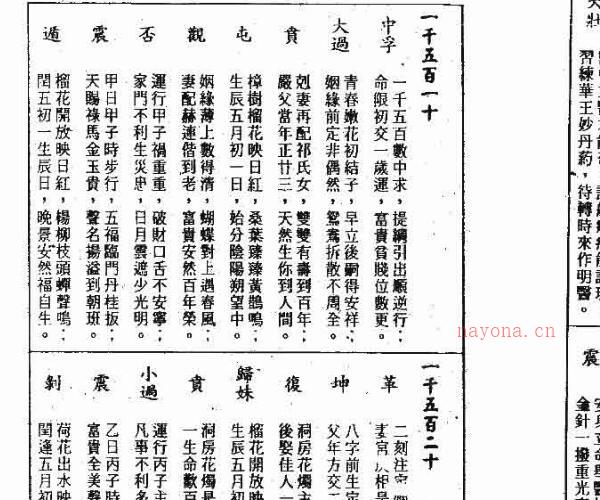 一千五百一十
中孚
一千五百數中求，提綱引出順逆行：
命限初交一歲運，富貴貧賤位數更。
大過
青春嫩花初結子，早立後嗣得安祥：
姻緣前定非偶然，鴛鴦拆散不周全。
賁
剋妻再配祁氏女，雙雙有壽到百年：
嚴父當年正廿三，天然生你到人間。
屯
樟樹榴花映日紅，桑葉臻臻黃鵲鳴：
生辰五月初一日，始分陰陽朔望中。
觀
姻緣薄上數得清，蝴蝶對上遇春風：
妻配赫連偕到老，富貴安然百年榮。
否
運行甲子禍重重，破財口舌不安寧：
家門不利生災患，日月雲遮少光明。
震
甲日甲子時步行，五福臨門丹桂扳：
天賜祿馬金玉貴，聲名揚溢到朝班。
遁
榴花開放映日紅，楊柳枝頭蟬聲鳴：
閏五初一生辰日，晚景安然福自生。
一千五百二十
革
二刻注
妻宮
坤
八字前生定
父年方交二
復
洞房花燭主
後娶佳人一
歸妹
榴花開放映
生辰五月初
賁
洞房花燭是
一生命數百
小過
運行丙子主
凡事不利多
震
乙日丙子時
富貴全美聲
剝
荷花出水映
閏逢五月初
大壯
習練華王妙丹葯，待轉時來作明醫。
震
金針一撥重光
nayona.cn